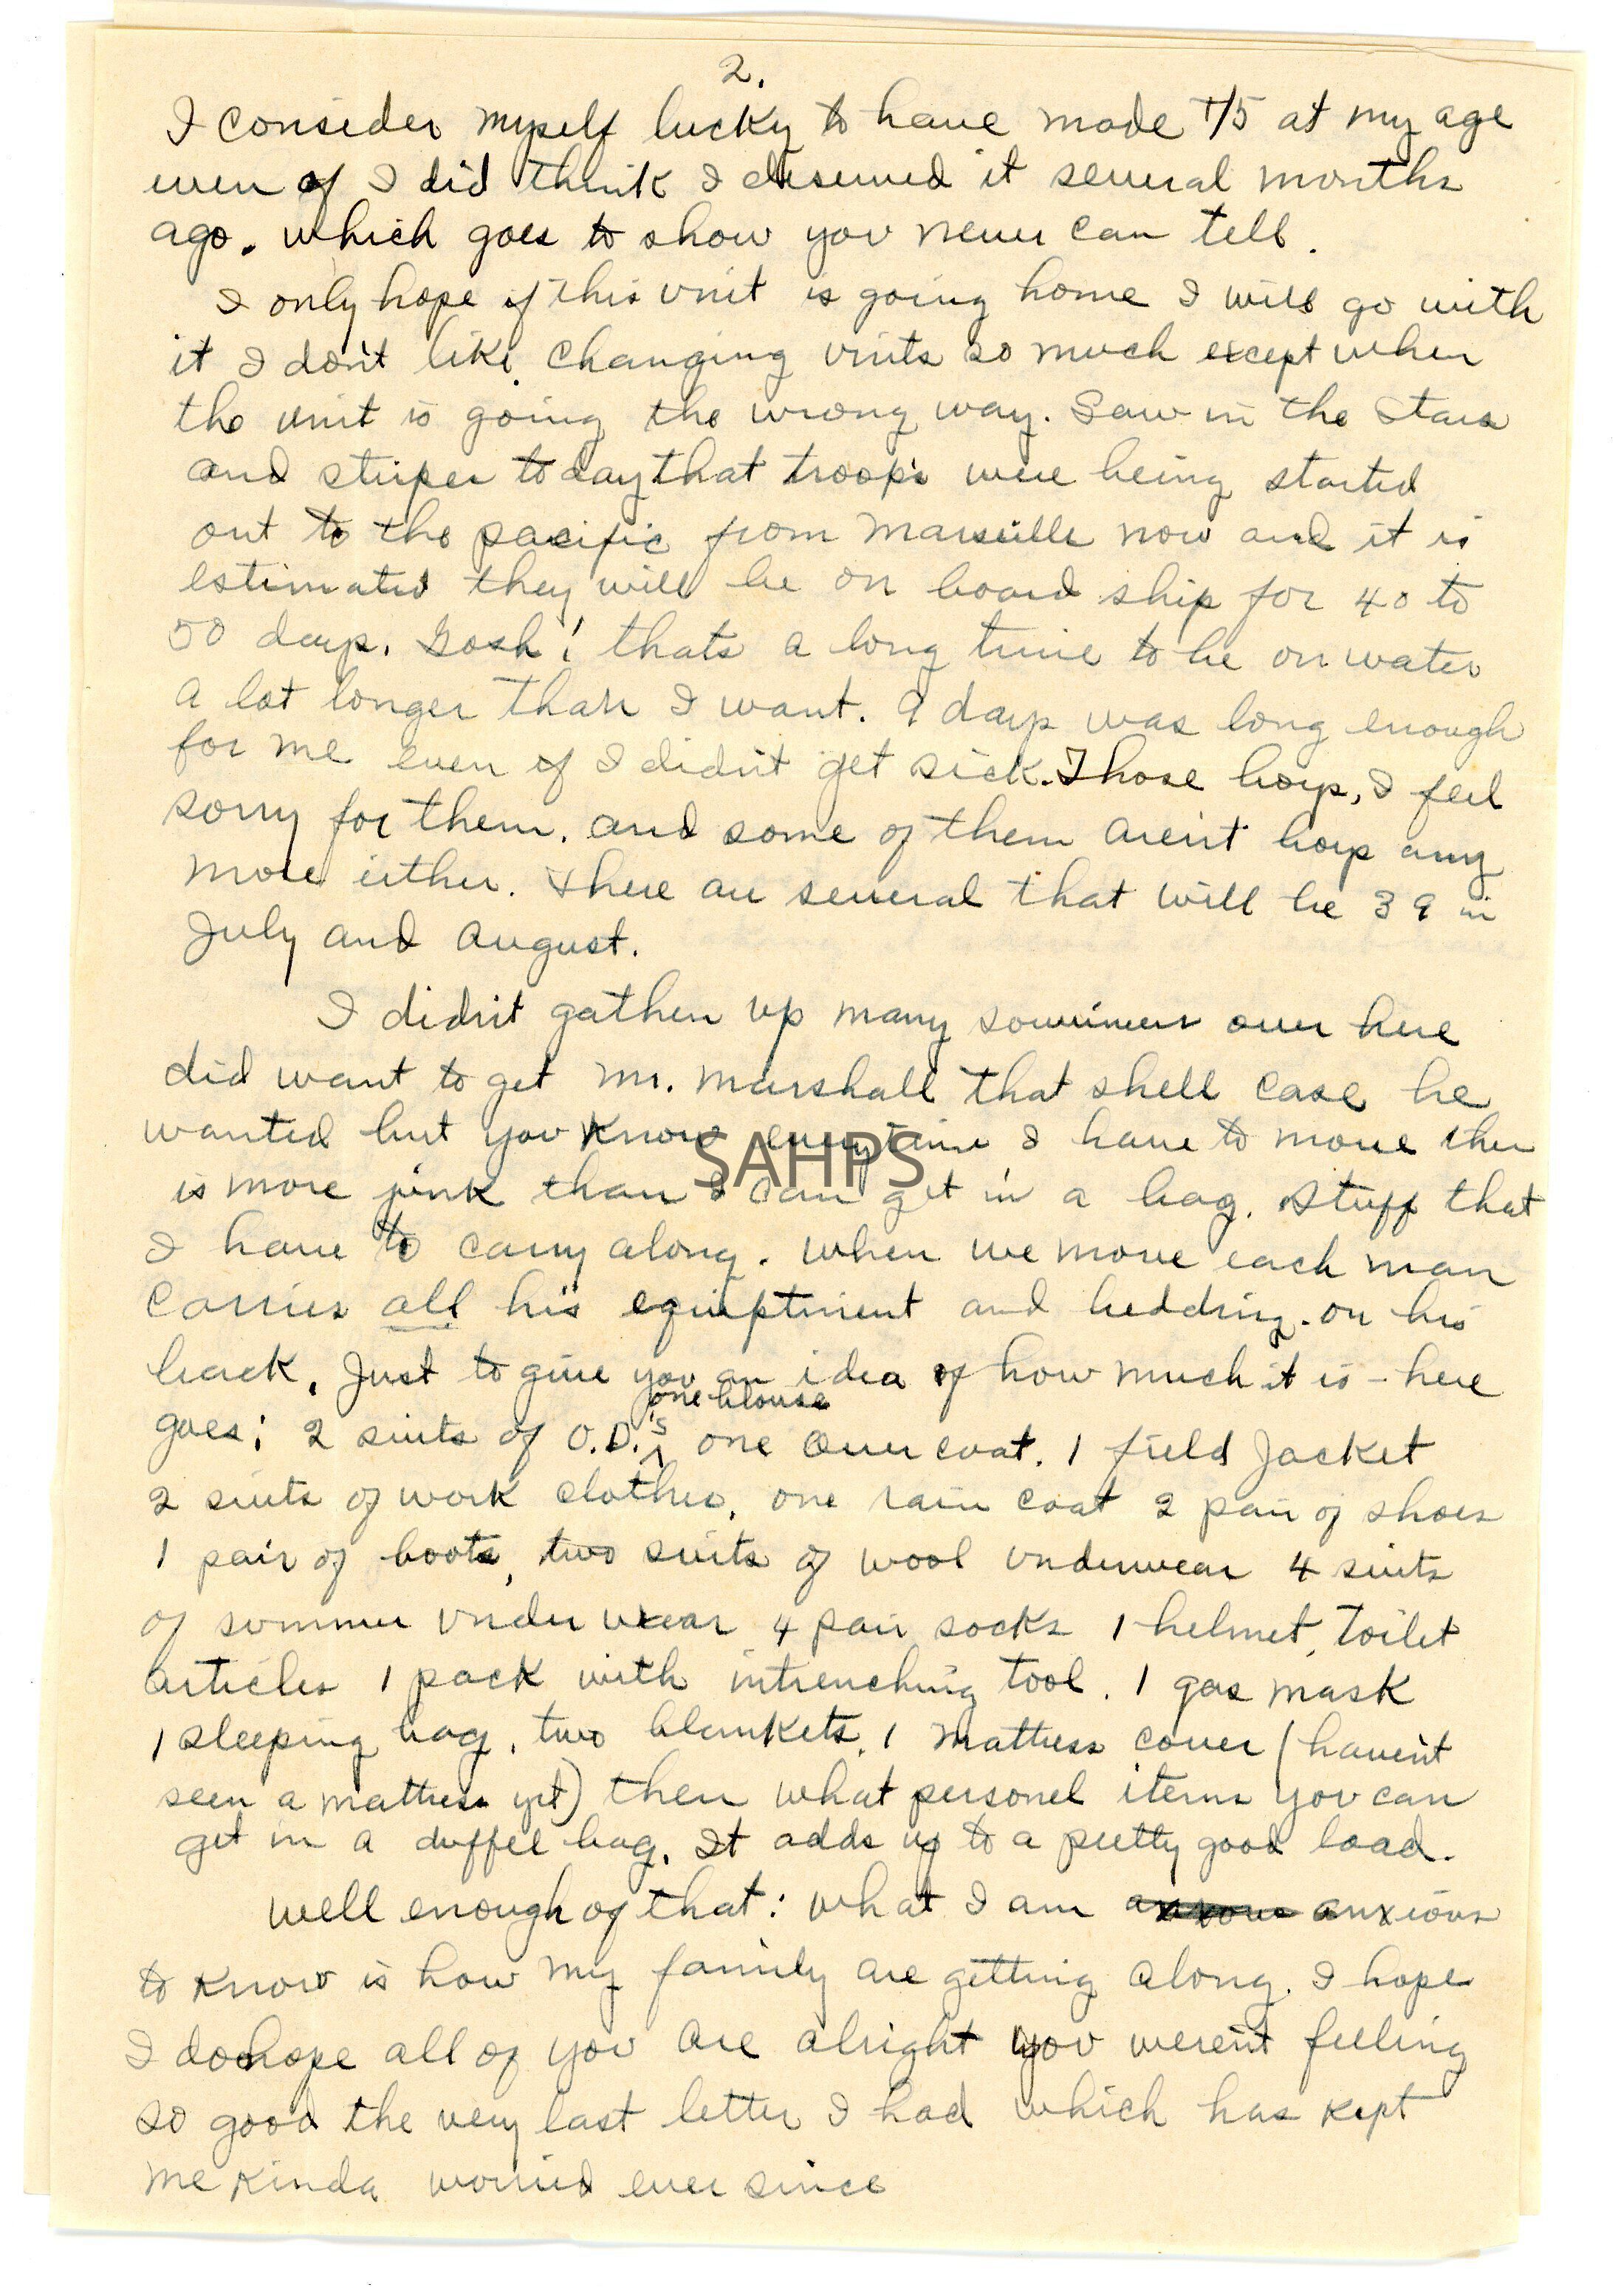 2.
I consider myself lucky to have made T/5 at my age
even if I did think I deserved it several months
ago. which goes to show you never can tell.
I only hope if this unit is going home I will go with
it I don't like changing units so much except when
the unit is going the wrong way. Saw in the Stars
and stripes today that troops were being started
out to the pacific from Marseille now and it is
estimated they will be on board ship for 40 to
50 days. Gosh! thats a long time to be on water
a lot longer than I want. 9 days was long enough
for me even if I didn't get sick. Those boys, I feel
sorry for them. and some of them aren't boys any
more either. There are several that will be 39 in
July and August.
I didn't gather up many souviners over here
did want to get Mr. Marshall that shell case he
wanted but you know everytime I have to move ther
is more junk than I can get in a bag. Stuff that
I have to carry along. When we move each man
carries all his equiptment and bedding. on his
back. Just to give you an idea of how much it is - here
one blouse
goes: 2 suits of O.D.'s one over coat. 1 field Jacket
2 suits of work clothes, one rain coat 2 pair of shoes
1 pair of boots, two suits of wool underwear 4 suits
of summer under wear 4 pair socks 1 helmet, toilet
articles 1 pack with intrenching tool. 1 gas mask
1 sleeping bag, two blankets. 1 mattress cover (havent
seen a mattress yet) then what personel items you can
get in a duffel bag. It adds up to a pretty good load.
Well enough of that: what I am anxious
to know is how my family are getting along. I hope
I do hope all of you are alright you weren't feeling
so good the very last letter I had which has kept
me kinda worried ever since
SAHPS